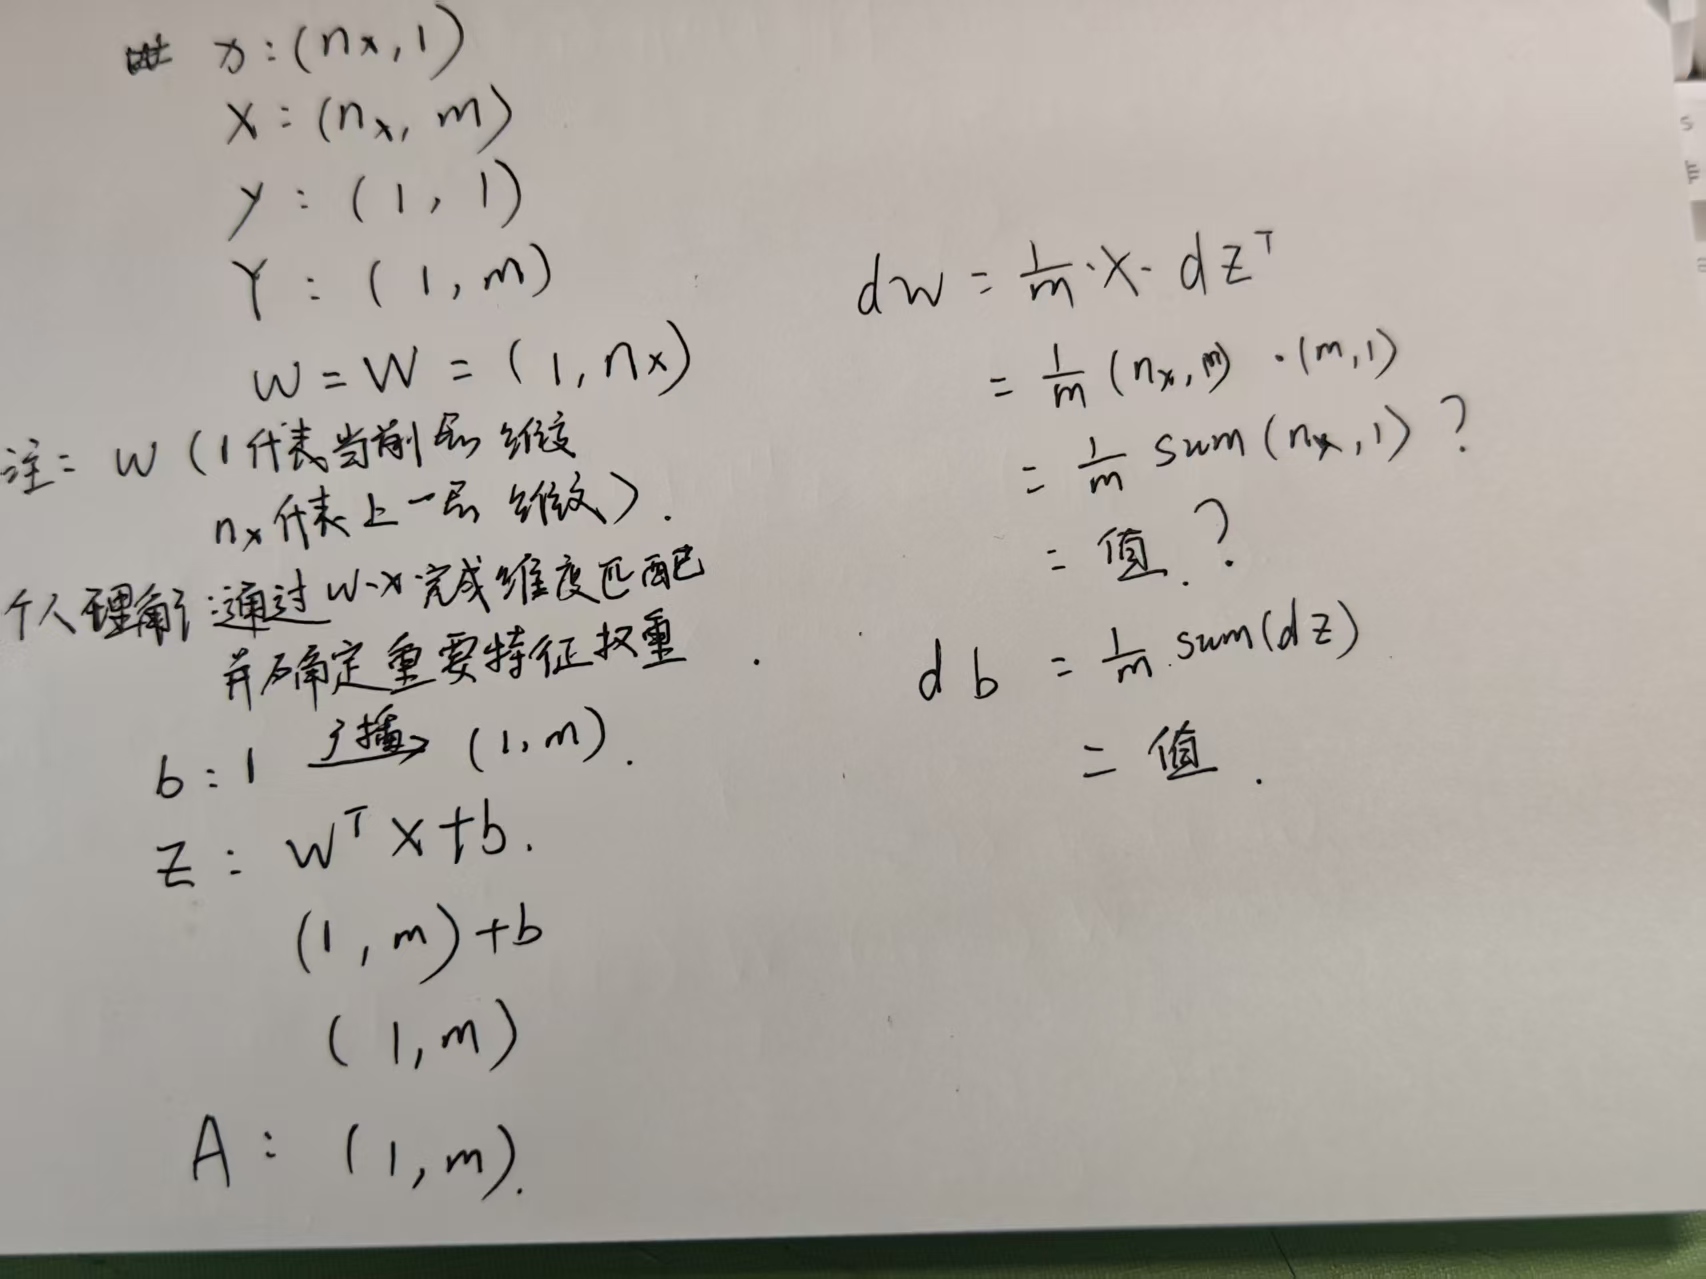 x:(nx,1)
X:(nx,m)
y:(1,1)
Y:(1,m)
w=W=(1,nx)
注: w(1代表当前层维度
nx代表上一层维度).
个人理解:通过w·x完成维度匹配
并确定重要特征权重.
b:1 广播→(1,m).
Z: wᵀX+b.
(1,m)+b
(1,m)
A:(1,m).
dw=1/m·X·dZᵀ
=1/m(nx,m)·(m,1)
=1/m sum(nx,1)?
=值.?
db=1/m.sum(dZ)
=值.